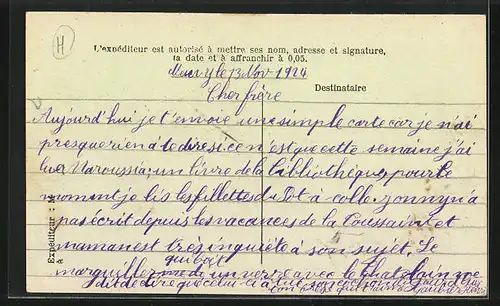 H
L'expéditeur est autorisé à mettre ses nom, adresse et signature,
la date et à affranchir à 0,05.
le 13 Nov 1924
Destinataire
Cher frère
Aujourd'hui je t'envoie une simple carte car je n'ai
presque rien à te dire si ce n'est que cette semaine j'ai
lu Maroussia; un livre de la bibliothèque, pour le
moment je lis les fillettes du Pot à colle. Yonny n'a
pas écrit depuis les vacances de la Toussaint et
maman est très inquiète à son sujet. Le
marguillier qui boit un verre avec le Chatelain me
dit de dire que celui-ci a
Expéditeur : M
à